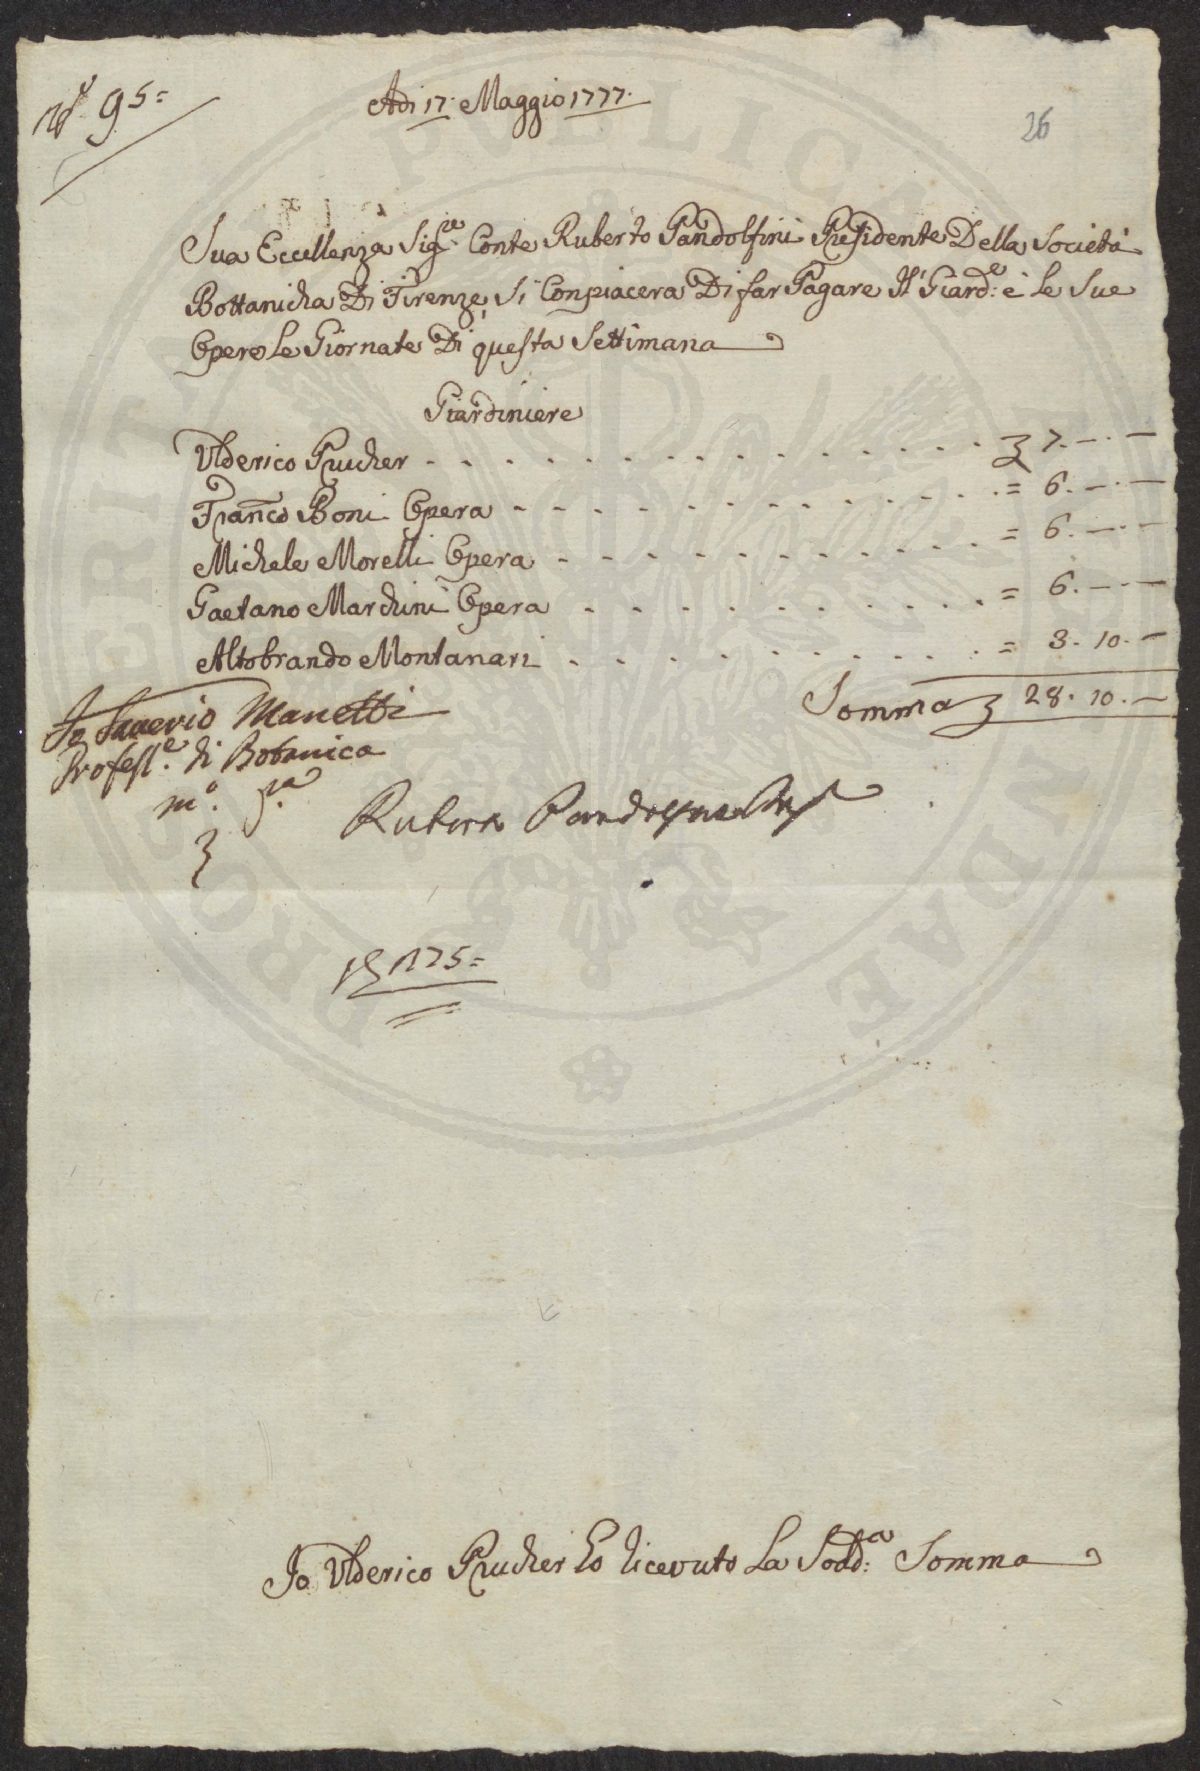 N° 95=
Adi 17. Maggio 1777.
26
Sua Eccellenza Sig.re Conte Ruberto Pandolfini Presidente Della Società
Bottanicha Di Firenze, Si Conpiacera Di far Pagare Il Giard.e è Le Sue
Opere le Giornate Di questa Settimana
Giardiniere
Ulderico Prucher - - - - - - - - - - - - - - £ 7. — . —
Franco Boni Opera - - - - - - - - - - - - = 6. — . —
Michele Morelli Opera - - - - - - - - - - - = 6. — . —
Gaetano Marchini Opera - - - - - - - - - - = 6. — . —
Altobrando Montanari - - - - - - - - - - = 3. 10. —
Somma £ 28. 10. —
Io Saverio Manetti
Profess.e di Botanica
m.o p.a
Ruberto Pandolfini
175=
Io Ulderico Prucher Ho Ricevuto La Sodd.a Somma
PVBLICAE
PROSPERITATI